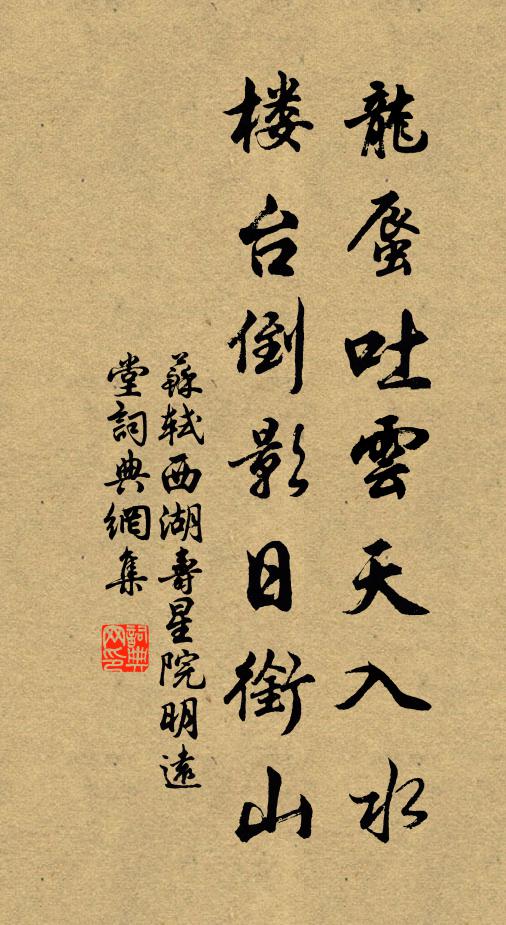 龍蜃吐雲天入水
楼台倒影日銜山
蘇軾西湖壽星院明遠
堂詞典網集
詞典
网印